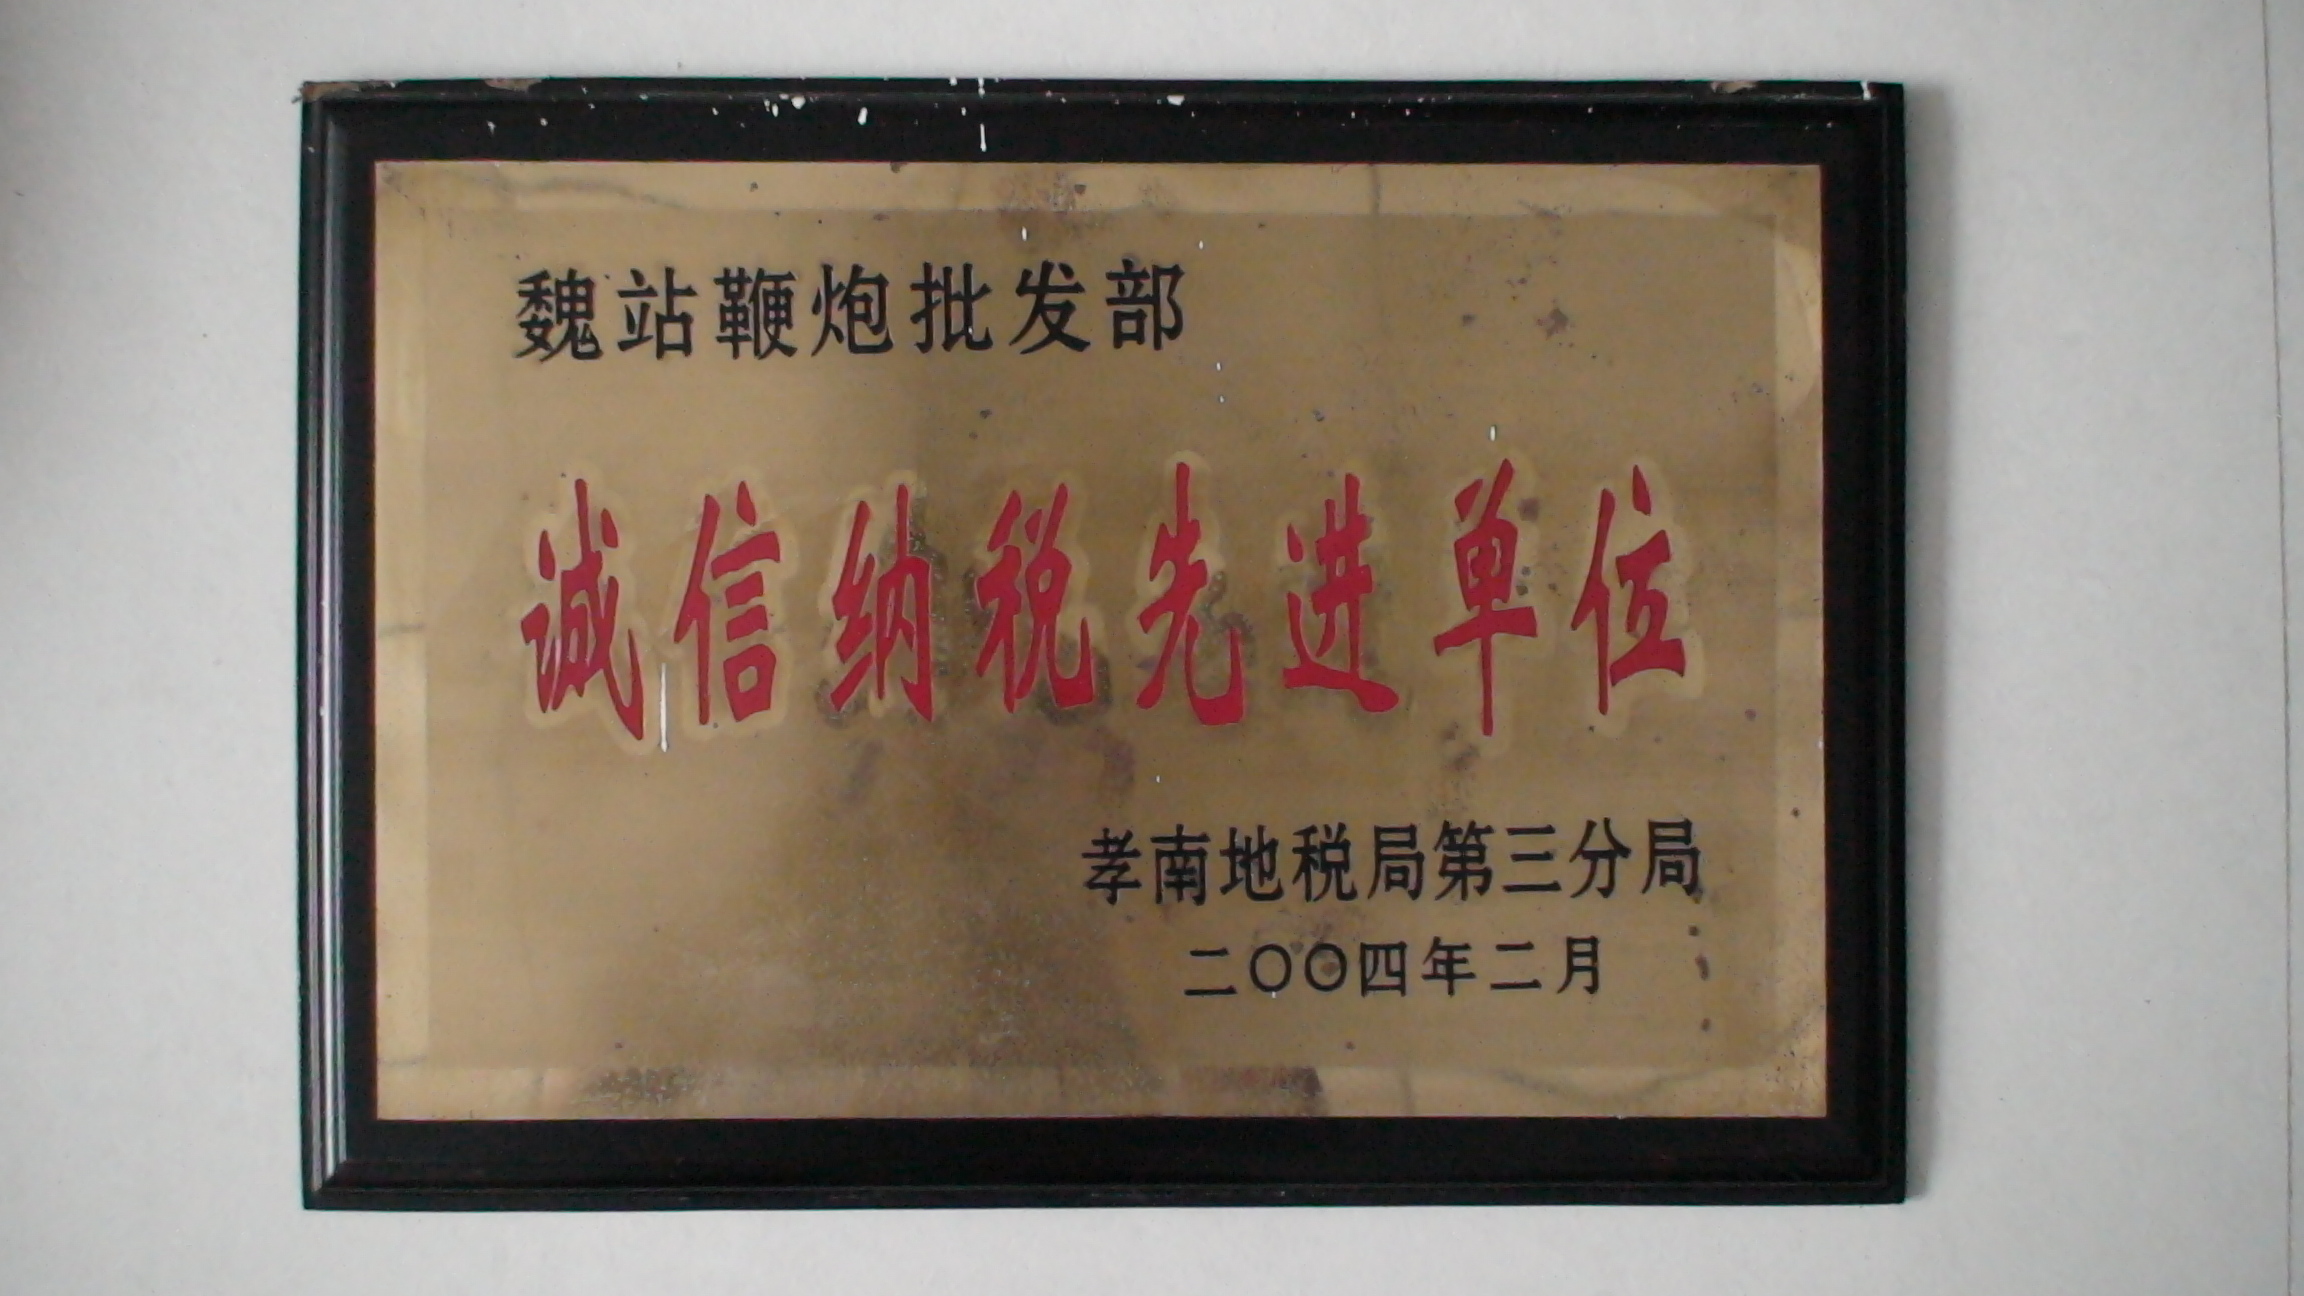 魏站鞭炮批发部
诚信纳税先进单位
孝南地税局第三分局
二〇〇四年二月